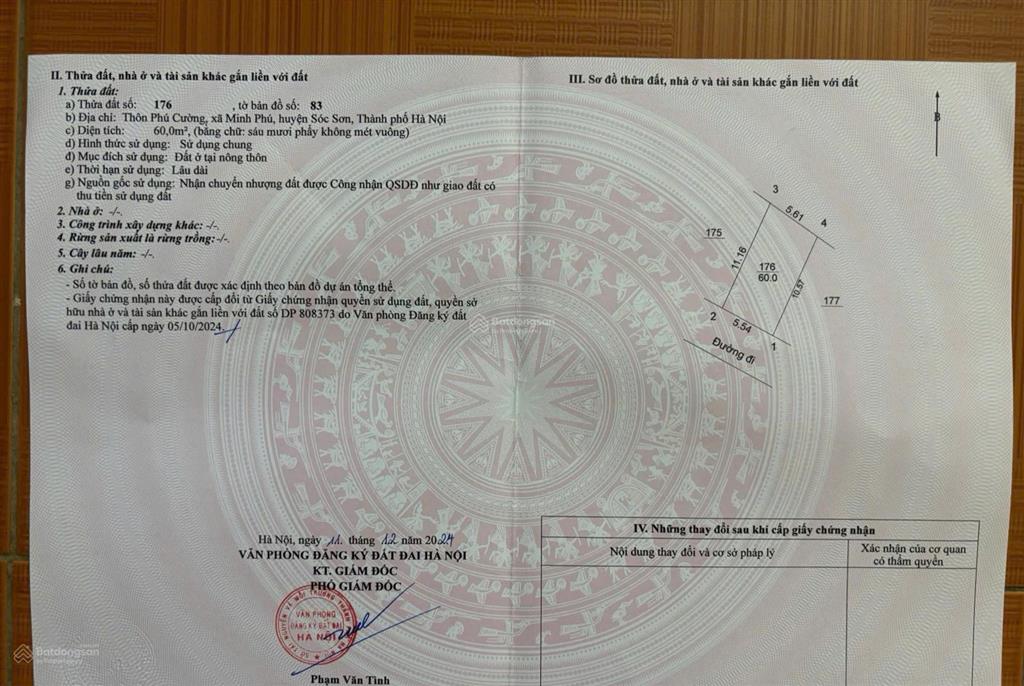 II. Thửa đất, nhà ở và tài sản khác gắn liền với đất
1. Thửa đất:
a) Thửa đất số: 176 , tờ bản đồ số: 83
b) Địa chỉ: Thôn Phú Cường, xã Minh Phú, huyện Sóc Sơn, Thành phố Hà Nội
c) Diện tích: 60,0m², (bằng chữ: sáu mươi phẩy không mét vuông)
d) Hình thức sử dụng: Sử dụng chung
đ) Mục đích sử dụng: Đất ở tại nông thôn
e) Thời hạn sử dụng: Lâu dài
g) Nguồn gốc sử dụng: Nhận chuyển nhượng đất được Công nhận QSDĐ như giao đất có
thu tiền sử dụng đất
2. Nhà ở: -/-.
3. Công trình xây dựng khác: -/-.
4. Rừng sản xuất là rừng trồng:-/-.
5. Cây lâu năm: -/-.
6. Ghi chú:
- Số tờ bản đồ, số thửa đất được xác định theo bản đồ dự án tổng thể.
- Giấy chứng nhận này được cấp đổi từ Giấy chứng nhận quyền sử dụng đất, quyền sở
hữu nhà ở và tài sản khác gắn liền với đất số DP 808373 do Văn phòng Đăng ký đất
đai Hà Nội cấp ngày 05/10/2024
Hà Nội, ngày 11 tháng 12 năm 2024
VĂN PHÒNG ĐĂNG KÝ ĐẤT ĐAI HÀ NỘI
KT. GIÁM ĐỐC
PHÓ GIÁM ĐỐC
VĂN PHÒNG
ĐĂNG KÝ ĐẤT ĐAI
HÀ NỘI
Phạm Văn Tình
III. Sơ đồ thửa đất, nhà ở và tài sản khác gắn liền với đất
B
3
5.61
4
175
11.16
176
60.0
10.57
177
2
5.54
1
Đường đi
IV. Những thay đổi sau khi cấp giấy chứng nhận
Nội dung thay đổi và cơ sở pháp lý
Xác nhận của cơ quan
có thẩm quyền
Batdongsan
Batdongsan